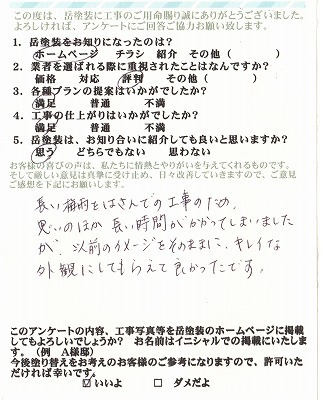 この度は、岳塗装に工事のご用命賜り誠にありがとうございました。
よろしければ、アンケートにご回答ご協力お願い致します。
1. 岳塗装をお知りになったのは?
ホームページ チラシ 紹介 その他 ( )
2. 業者を選ばれる際に重視されたことはなんですか?
価格 対応 評判 その他 ( )
3. 各種プランの提案はいかがでしたか?
満足 普通 不満
4. 工事の仕上がりはいかがでしたか?
満足 普通 不満
5. 岳塗装は、お知り合いに紹介しても良いと思いますか?
思う どちらでもない 思わない
お客様の喜びの声は、私たちに情熱とやりがいを与えてくれるものです。
そして厳しい意見は真摯に受け止め、日々改善していきますので、ご意見
ご感想を下記にお願します。
長い梅雨をはさんでの工事のため、
思いのほか長い時間がかかってしまいました
が、以前のイメージをそのままに、キレイな
外観にしてもらえて良かったです。
このアンケートの内容、工事写真等を岳塗装のホームページに掲載
してもよろしいでしょうか? お名前はイニシャルでの掲載にいたしま
す。(例 A様邸)
今後塗り替えをお考えのお客様のご参考になりますので、許可いた
だければ幸いです。
☑ いいよ □ ダメだよ